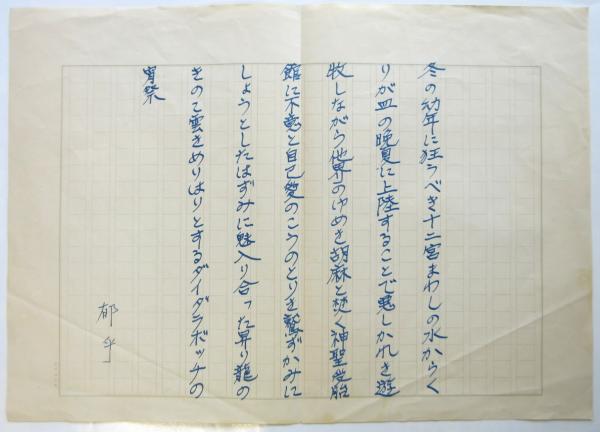 冬の幼年に狂うべき十二宮まわしの水からく
りが皿の晩夏に上陸することで悪しかれき遊
牧しながら他界のゆめき胡麻と焚く神聖受胎
館に不意と自己愛のこうのとりを鷲ずかみに
しようとしたはずみに魅入り合った昇り龍の
きのこ雲きめりはりとするダイダラボッチの
宵祭
郁乎